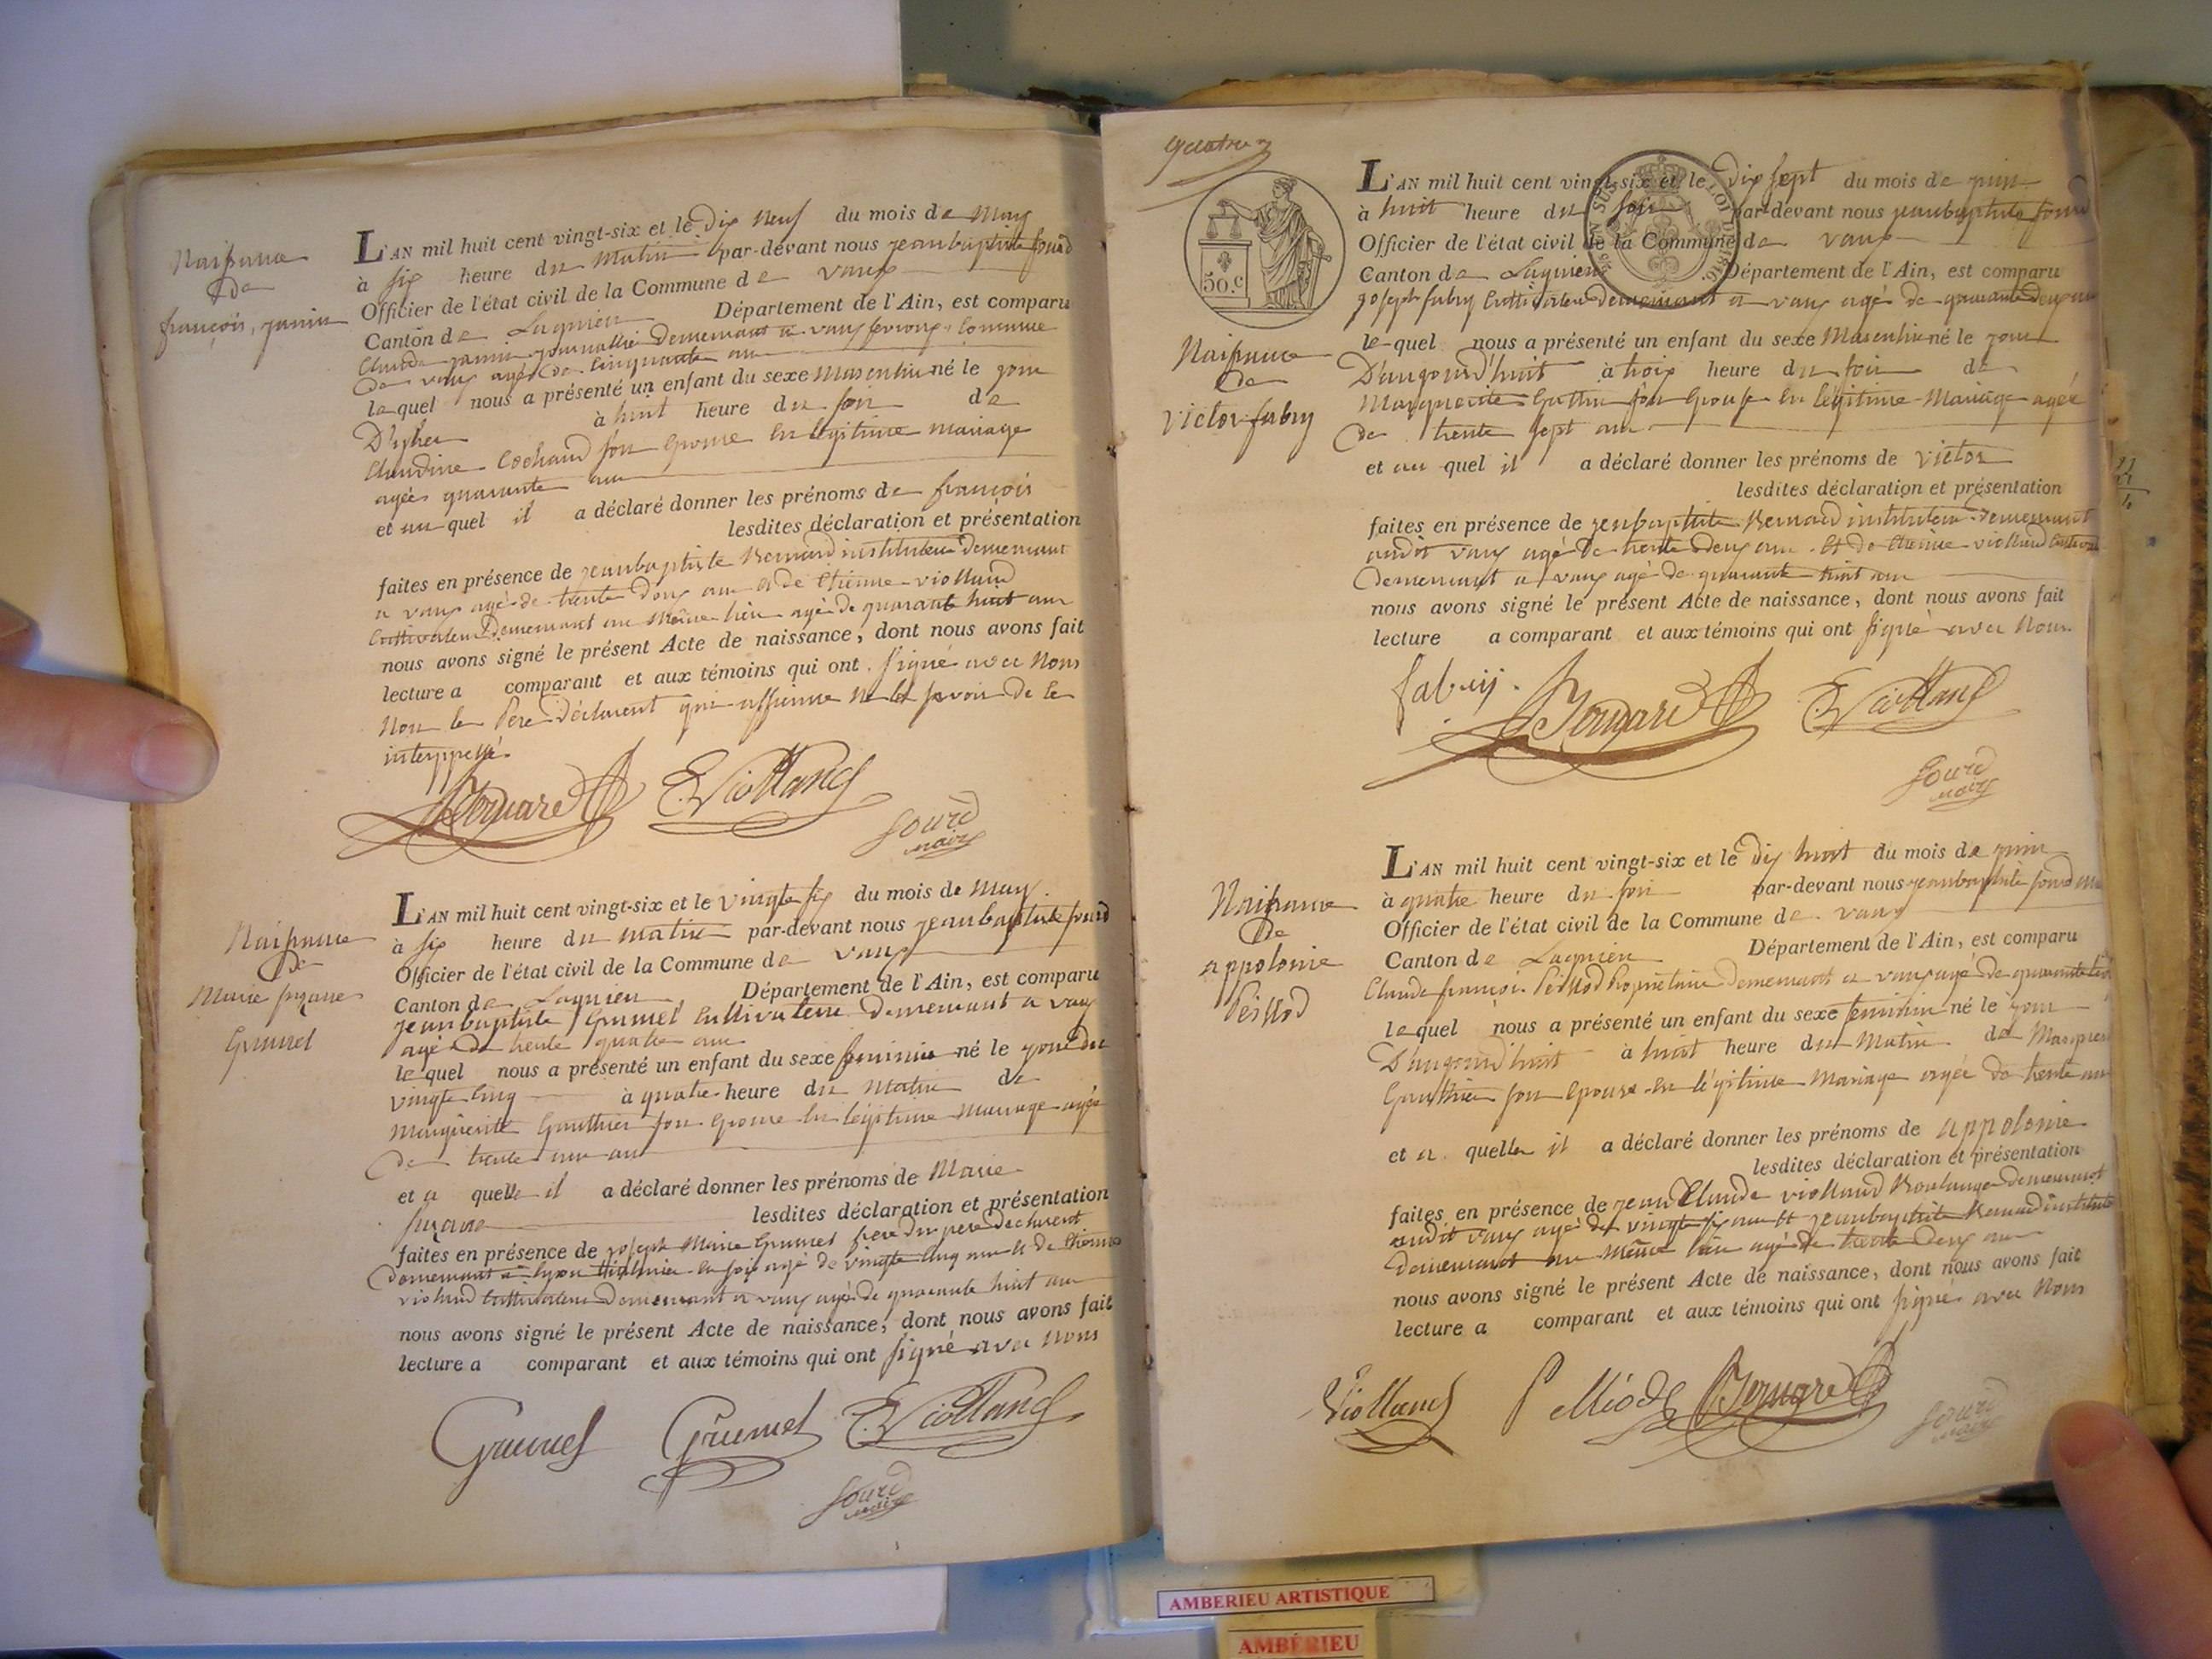 Naissance
de
françois, janin
L'AN mil huit cent vingt-six et le dix neuf du mois de may
à six heure du matin par-devant nous jeanbaptiste fourd
Officier de l'état civil de la Commune de vaux
Canton de Lagnieu Département de l'Ain, est comparu
Claude janin journallié demeurant a vaux commune
de vaux agé de cinquante an
lequel nous a présenté un enfant du sexe masculin né le jour
D'yher à huit heure du soir de
Claudine Cochand son epouse en legitime mariage
agée quarante an
et au quel il a déclaré donner les prénoms de françois
lesdites déclaration et présentation
faites en présence de jeanbaptiste Bernard instituteur demeurant
a vaux agé de trente deux an et de Etienne violland
Cultivateur demeurant au même lieu agé de quarante huit an
nous avons signé le présent Acte de naissance, dont nous avons fait
lecture a comparant et aux témoins qui ont signé avec nous
non le Pere déclarent qui affirme ne le savoir de ce
interppellé
Bernard E. Violland
fourd
maire
Naissance
de
Marie suzanne
Grumel
L'AN mil huit cent vingt-six et le vingte six du mois de may
à six heure du matin par-devant nous jeanbaptiste fourd
Officier de l'état civil de la Commune de vaux
Canton de Lagnieu Département de l'Ain, est comparu
jeanbaptiste Grumel Cultivateur demeurant a vaux
agé de trente quatre an
lequel nous a présenté un enfant du sexe feminin né le jour du
vingte cinq à quatre heure du matin de
Marguerite Gauthier son epouse en legitime mariage agée
de trente un an
et a quelle il a déclaré donner les prénoms de Marie
suzanne lesdites déclaration et présentation
faites en présence de joseph Marie Grumel frere du pere declarent
demeurant a lyon agé de vingte cinq an et de Etienne
violland Cultivateur demeurant a vaux agé de quarante huit an
nous avons signé le présent Acte de naissance, dont nous avons fait
lecture a comparant et aux témoins qui ont signé avec nous
Grumel Grumel E. Violland
fourd
maire
quatre
50.c
TIMBRE LOI DE 1816
Naissance
de
victor fabry
L'AN mil huit cent vingt-six et le dix sept du mois de juin
à huit heure du soir par-devant nous jeanbaptiste fourd
Officier de l'état civil de la Commune de vaux
Canton de Lagnieu Département de l'Ain, est comparu
joseph fabry Cultivateur demeurant a vaux agé de quarante deux an
lequel nous a présenté un enfant du sexe Masculin né le jour
D'aujourd'huit à trois heure du soir de
Marguerite son epouse en legitime Mariage agée
de trente sept an
et au quel il a déclaré donner les prénoms de victor
lesdites déclaration et présentation
faites en présence de jeanbaptiste Bernard instituteur demeurant
audit vaux agé de trente deux an et de Etienne violland
demeurant a vaux agé de quarante huit an
nous avons signé le présent Acte de naissance, dont nous avons fait
lecture a comparant et aux témoins qui ont signé avec nous
fabry. Bernard E. Violland
fourd
maire
Naissance
de
appolonie
L'AN mil huit cent vingt-six et le dix huit du mois de juin
à quatre heure du soir par-devant nous jeanbaptiste fourd
Officier de l'état civil de la Commune de vaux
Canton de Lagnieu Département de l'Ain, est comparu
Claude françois Propriétaire demeurant a vaux agé de quarante
lequel nous a présenté un enfant du sexe feminin né le jour
D'aujourd'huit à huit heure du Matin de
Gauthier son epouse en légitime Mariage agée de trente an
et a quelle il a déclaré donner les prénoms de appolonie
lesdites déclaration et présentation
faites en présence de jean Claude violland Boulanger demeurant
audit vaux agé de vingte six an et jeanbaptiste Bernard
demeurant au même lieu agé de trente deux an
nous avons signé le présent Acte de naissance, dont nous avons fait
lecture a comparant et aux témoins qui ont signé avec nous
Violland Bernard
fourd
maire
AMBERIEU ARTISTIQUE
AMBÉRIEU